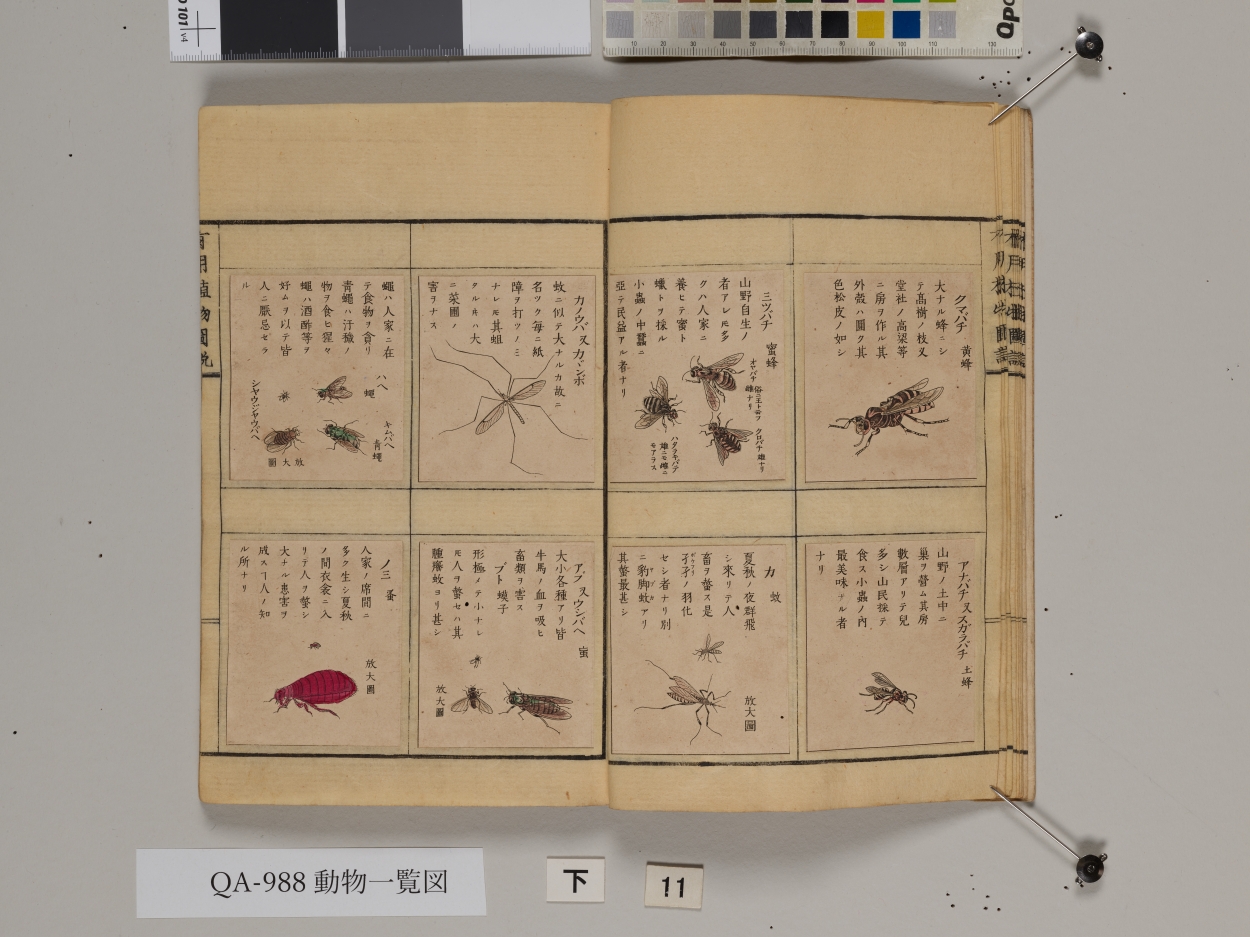 クマバチ 黄蜂
大ナル蜂ニシ
テ髙樹ノ枝又
堂社ノ高梁等
ニ房ヲ作ル其
外殻ハ圓ク其
色松皮ノ如シ
三ツバチ 蜜蜂
山野自生ノ
者アレ𪜈多
クハ人家ニ
養ヒテ蜜ト
蠟トヲ採ル
小蟲ノ中蠶ニ
亞テ民益アル者ナリ
オヤバチ 雌ナリ
俗ニ王ト云フ
クロバチ 雄ナリ
ハタラキバチ
雄ニモ雌ニ
モアラス
カノウバ 又 カヾンボ
蚊ニ似テ大ナルカ故ニ
名ツク毎ニ紙
障ヲ打ツノミ
ナレ𪜈其蛆
クルキハ大
ニ菜圃ノ
害ヲナス
蠅ハ人家ニ在
テ食物ヲ貪リ
青蠅ハ汙穢ノ
物ヲ食ヒ猩々
蠅ハ酒酢等ヲ
好ムヲ以テ皆
人ニ厭忌セラ
ル
ハヘ 蠅
キムバヘ 青蠅
シヤウジヤウバヘ
放大圖
アナバチ 又 スガラバチ 土蜂
山野ノ土中ニ
巢ヲ營ム其房
數層アリテ兒
多シ山民採テ
食ス小蟲ノ内
最美味ナル者
ナリ
カ 蚊
夏秋ノ夜群飛
シ來リテ人
畜ヲ螫ス是
孑孑ノ羽化
セシ者ナリ別
ニ豹脚蚊アリ
其螫最甚シ
放大圖
アブ 又 ウシバヘ 䖟
大小各種アリ皆
牛馬ノ血ヲ吸ヒ
畜類ヲ害ス
ブト 蟆子
形極メテ小ナレ
𪜈人ヲ螫セハ其
腫癢蚊ヨリ甚シ
放大圖
ノ三 蚤
人家ノ席間ニ
多ク生シ夏秋
ノ間衣衾ニ入
リテ人ヲ螫シ
大ナル患害ヲ
成スヿ人ノ知
ル所ナリ
放大圖
QA-988 動物一覧図
下
11